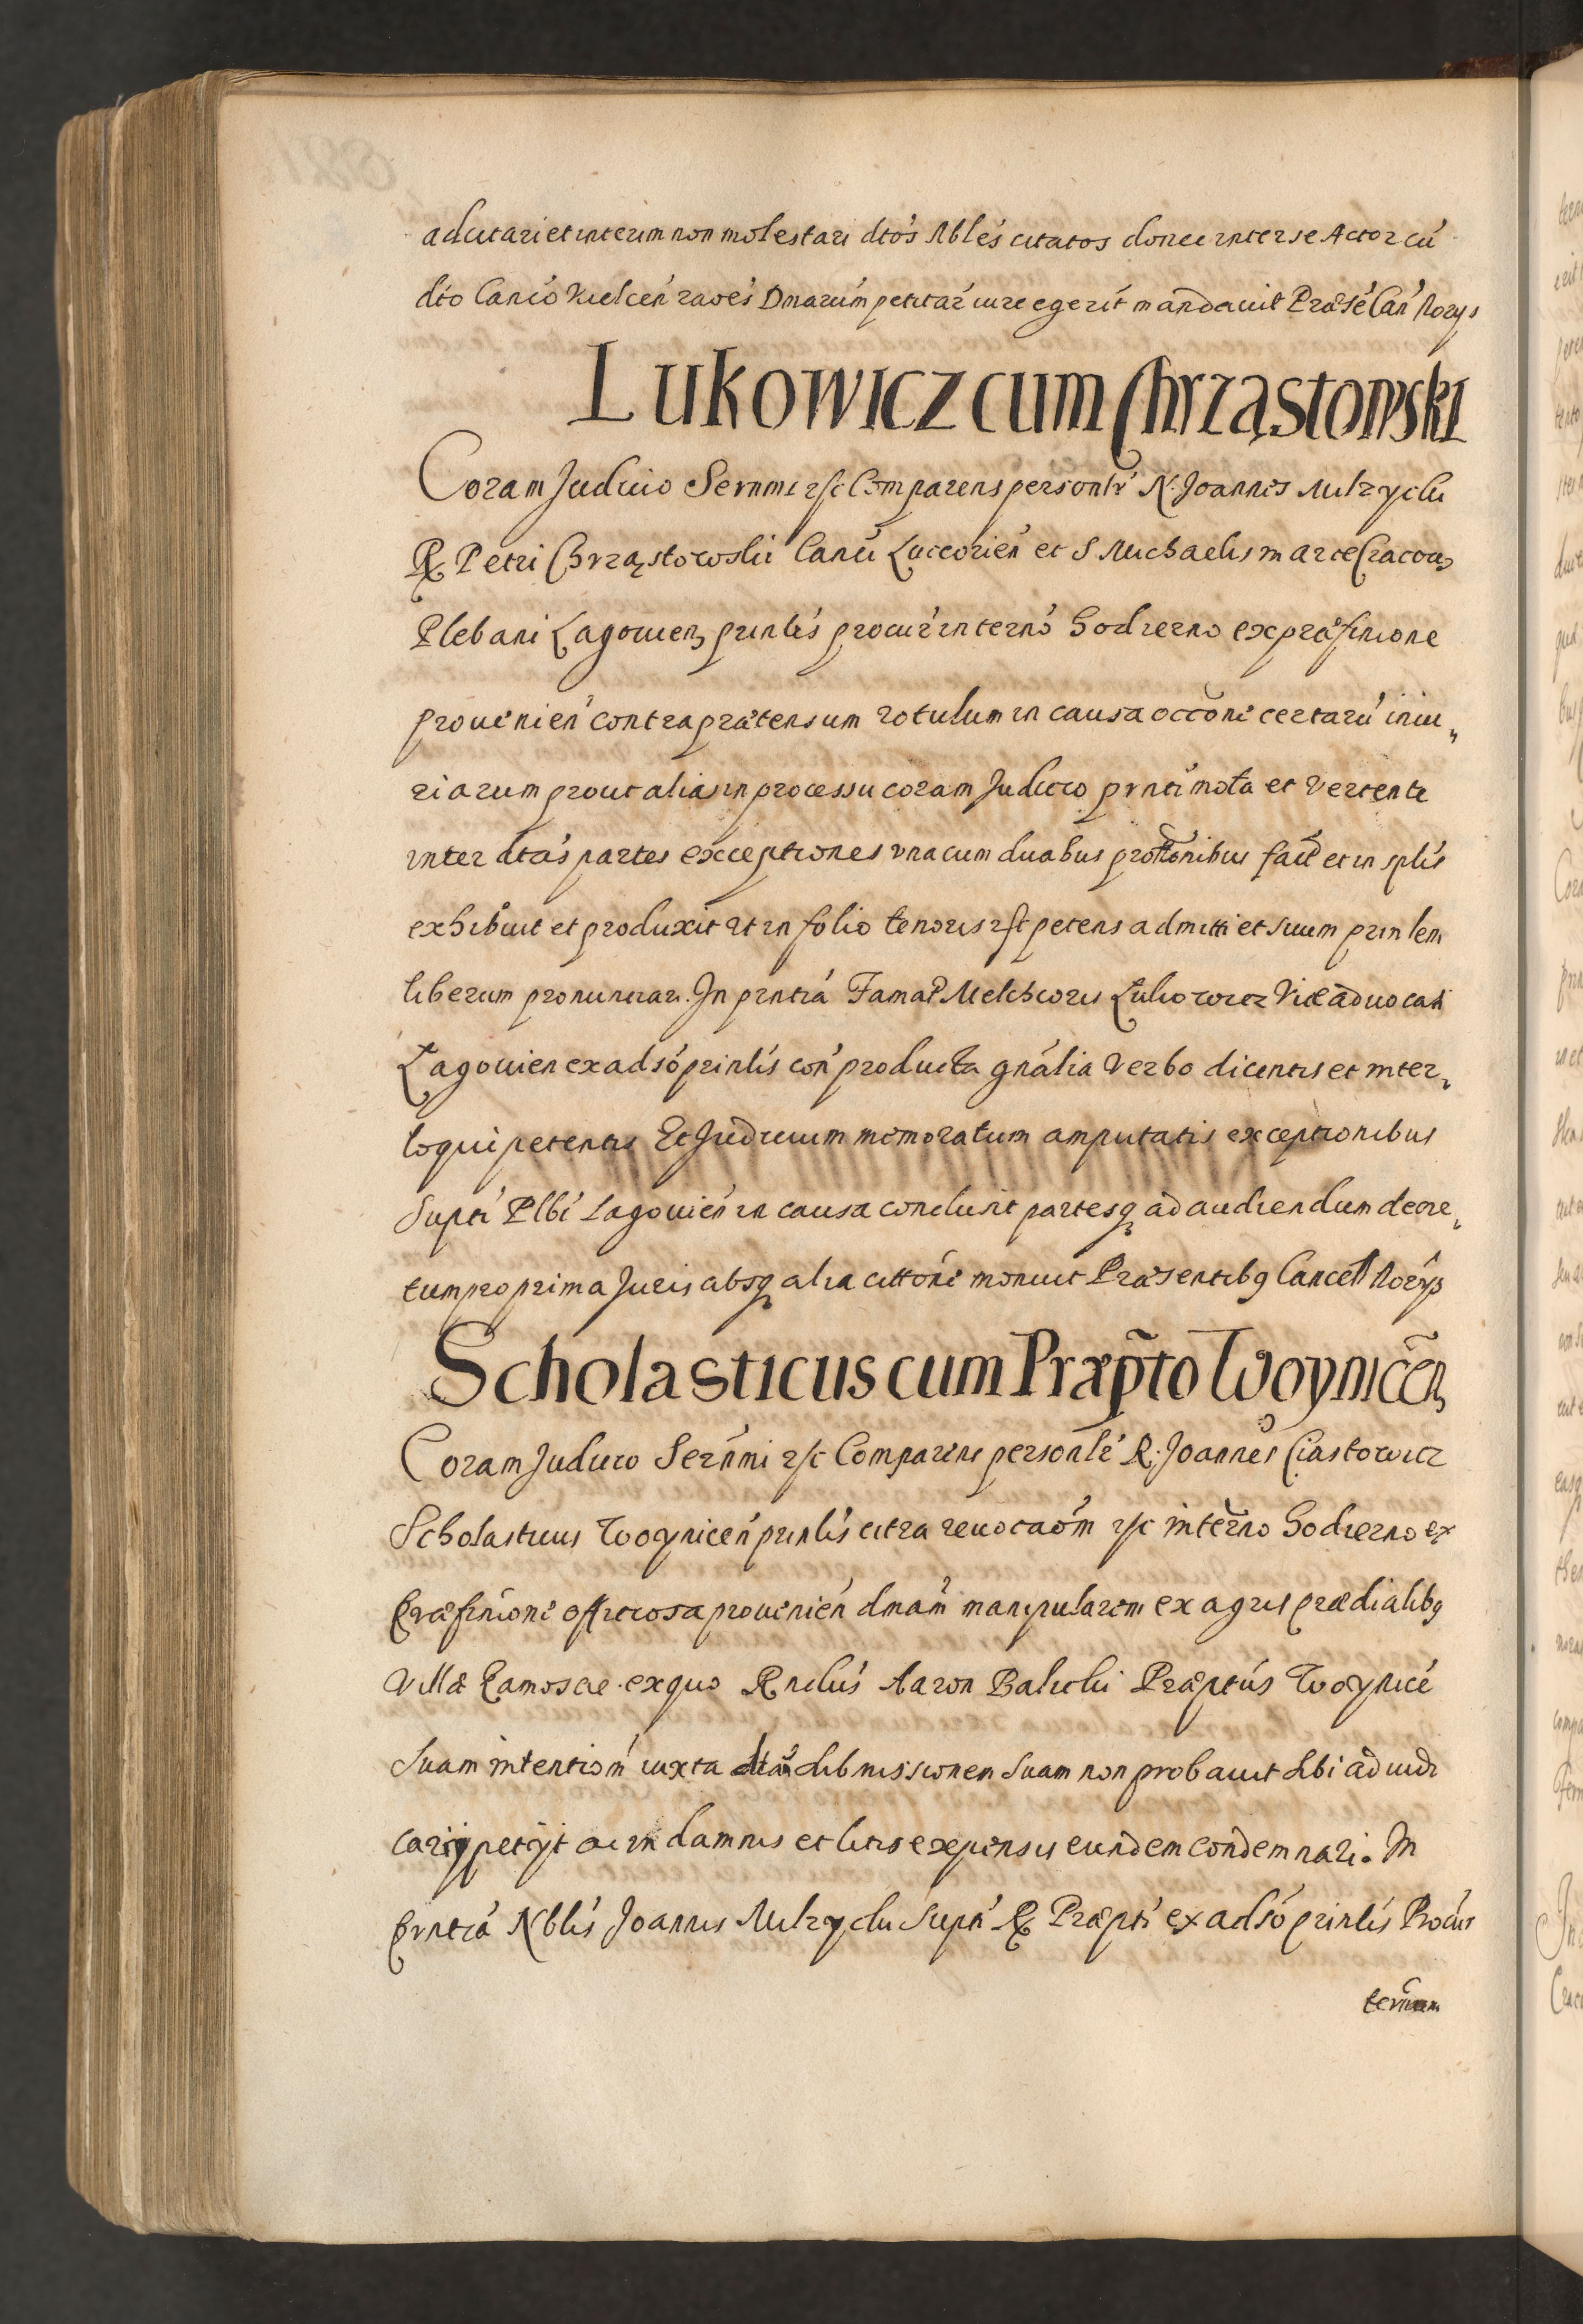 adcitari et interim non molestari dtos Nbles citatos donec inter se Actor cú
dto Canco Kielcen raoes Dmarum petitar iure egerit mandavit Præse Can Norys
Lukowicz cum Chrząstowski
Coram Judicio Sernmi rsc Comparens personlr N. Joannes Milzycki
R Petri Chrząstowski Canci Luceorien et S Michaelis in arce Cracou
Plebani Lagouien prinlis procur in terno hodierno ex præfinione
prouenien contra prætensum rotulum in causa occone certaru iniu„
riarum prout alias in processu coram Judicio prnti mota et vertente
inter dtas partes exceptiones vna cum duabus prottonibus facit et in splis
exhibuit et produxit ut in folio tenoris rsc petens admitti et suum prinlem
liberum pronunciari. In prntia Fama Melchioris Lukowicz Viceaduocati
Lagouien ex adso prinlis con producta gnalia verbo dicentis et inter„
loqui petentis Et Judicium memoratum amputatis exceptionibus
Supti Plbi Lagouien in causa conclusit partesq ad audiendum decre„
tum pro prima Juris absq alia cittone monuit Præsentibq Cancell Norys
Scholasticus cum Præpto Woynicen
Coram Judicio Sernmi rsc Comparens personlr R. Joannes Ciastowicz
Scholasticus Woynicen prinlis citra reuocaom rsc in terno hodierno ex
Præfinione officiosa prouenien dmam manipularem ex agris prædialibq
Villæ Ramoscæ. ex quo Rndus Aaron Balicki Præptus Woynice
Suam intentiom iuxta dta submissionem Suam non probauit sibi adiudi
cari petijt ac in damnis et litis expensis eundem condemnari. In
Prntia Nblis Joannis Milzycki Supti R Præpti ex adso prinlis Procur
terum